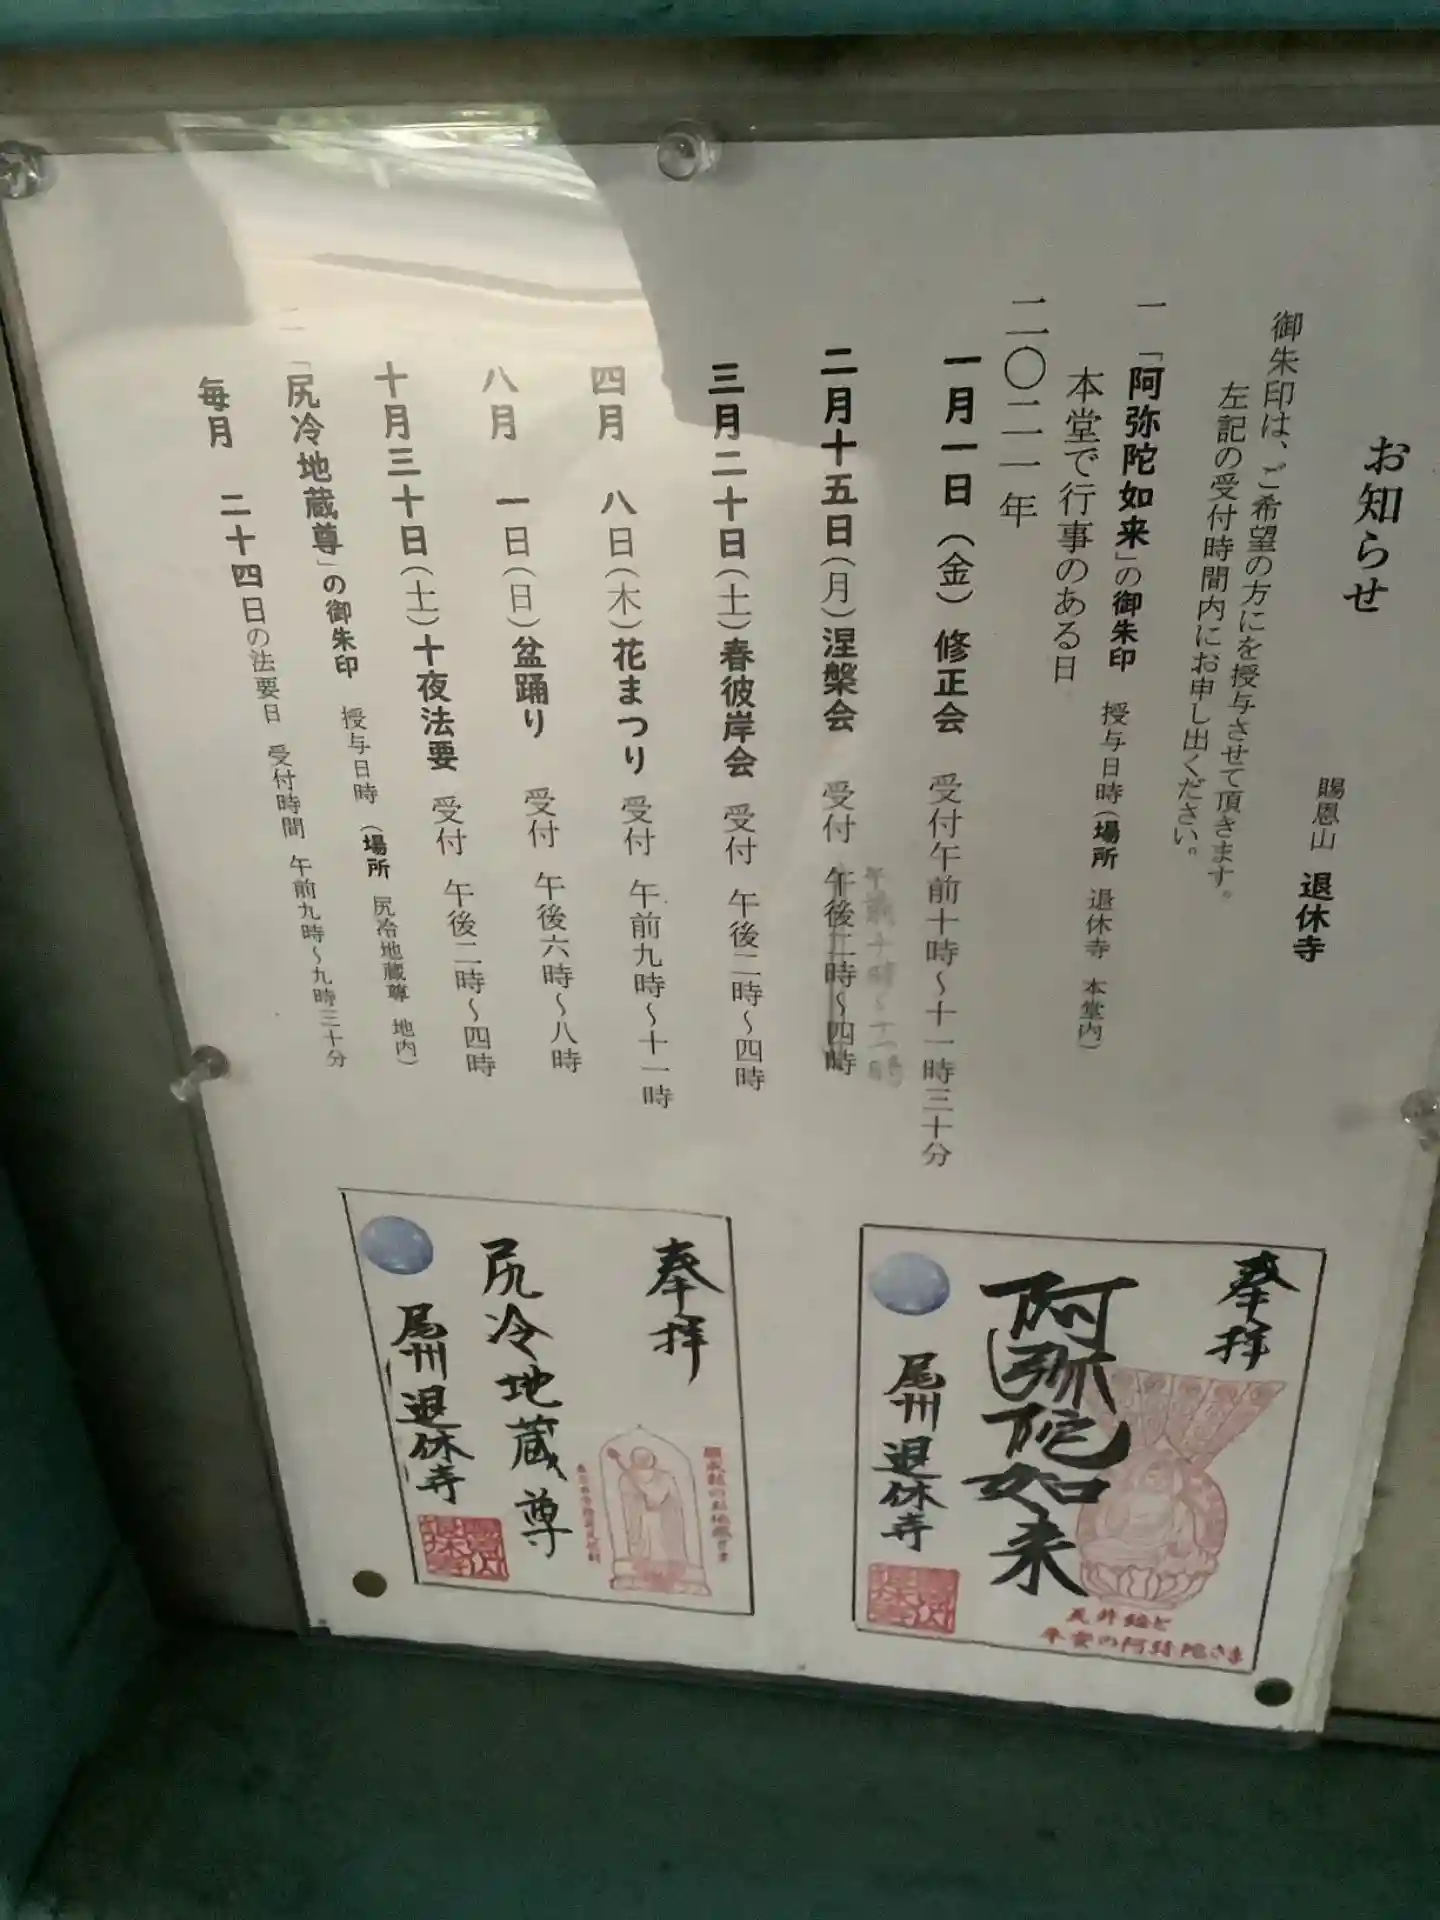 お知らせ
賜恩山 退休寺
御朱印は、ご希望の方にを授与させて頂きます。
左記の受付時間内にお申し出ください。
一 「阿弥陀如来」の御朱印 授与日時(場所 退休寺 本堂内)
本堂で行事のある日
二〇二一年
一月一日(金) 修正会 受付午前十時~十一時三十分
二月十五日(月)涅槃会 受付 午後二時~四時
午前十時~十一時
三月二十日(土)春彼岸会 受付 午後二時~四時
四月 八日(木)花まつり 受付 午前九時~十一時
八月 一日(日)盆踊り 受付 午後六時~八時
十月三十日(土)十夜法要 受付 午後二時~四時
二 「尻冷地蔵尊」の御朱印 授与日時 (場所 尻冷地蔵尊 地内)
毎月 二十四日の法要日 受付時間 午前九時~九時三十分
奉拝
阿弥陀如来
尾州退休寺
平安の阿弥陀さま
奉拝
尻冷地蔵尊
尾州退休寺